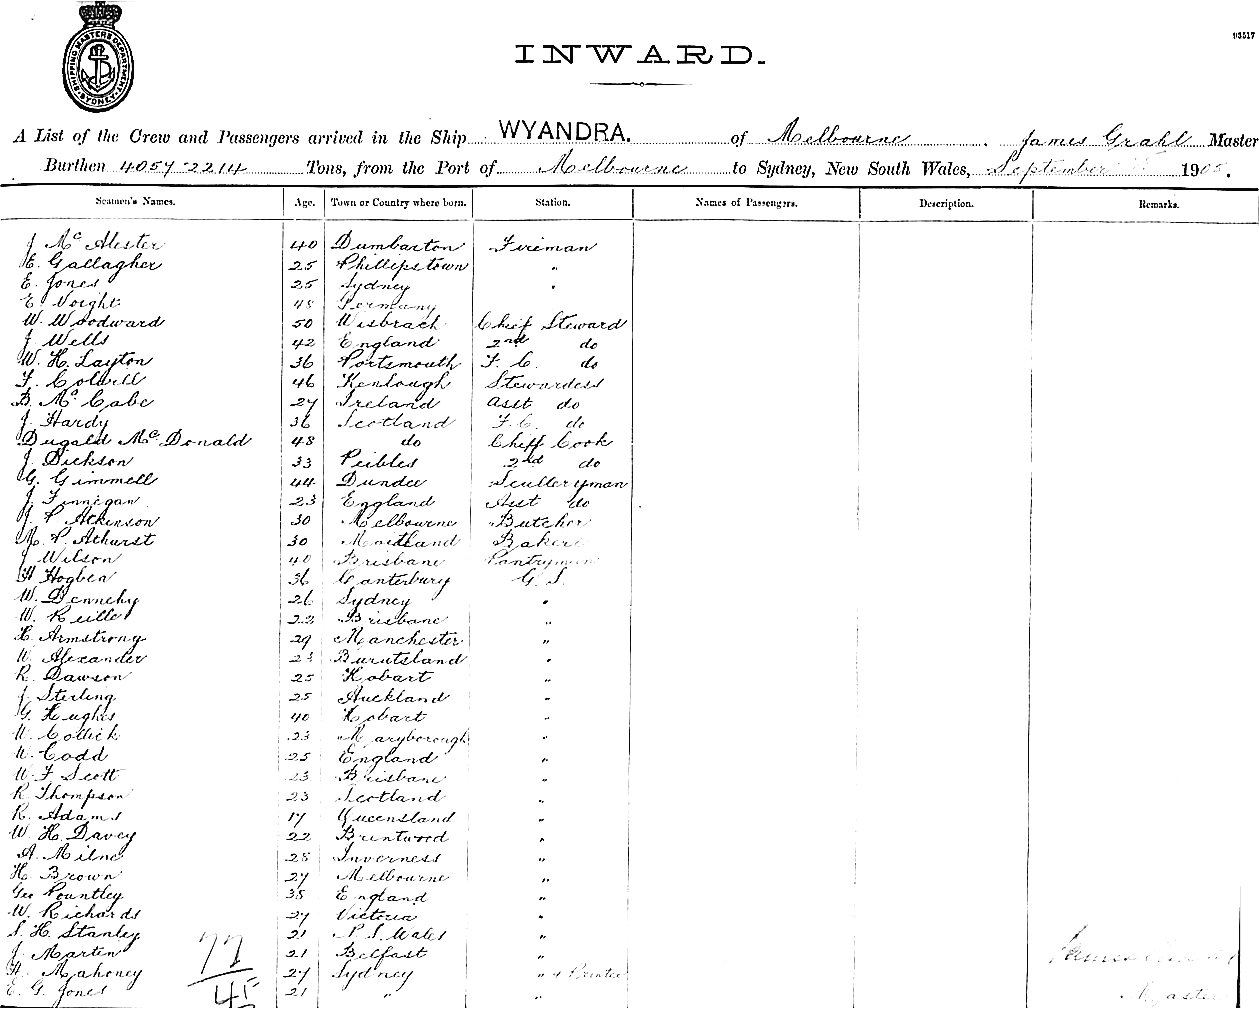 SHIPPING MASTERS DEPARTMENT SYDNEY
93517
INWARD.
A List of the Crew and Passengers arrived in the Ship WYANDRA. of Melbourne. James Grahl Master
Burthen 4057-2214 Tons, from the Port of Melbourne to Sydney, New South Wales, September 1905.
Seamen's Names. Age. Town or Country where born. Station. Names of Passengers. Description. Remarks.
J McAlester 40 Dumbarton Fireman
E. Gallagher 25 Phillipstown "
E. Jones 25 Sydney "
E. Voight 48 Germany
W. Woodward 50 Wisbeach Chief Steward
J Wells 42 England 2nd do
W. H. Layton 36 Portsmouth F. C. do
F. Colvill 46 Kenlough Stewardess
B. McCabe 27 Ireland Asst do
J. Hardy 36 Scotland F. C. do
Dugald McDonald 48 do Chief Cook
J. Dickson 33 Peibles 2nd do
G. Gimmell 44 Dundee Sculleryman
J. Finnegan 23 England Asst do
J. P. Atkinson 30 Melbourne Butcher
M. P. Athurst 30 Maitland Baker
J Wilson 40 Brisbane Pantryman
H Hogben 36 Canterbury G. S.
W. Dennehy 26 Sydney "
W. Reille 22 Brisbane "
C. Armstrong 29 Manchester "
W. Alexander 23 "
R. Dawson 25 Hobart "
J Sterling 25 Auckland "
G. Hughes 40 Hobart "
W. Collick 23 Maryborough "
W. Codd 25 England "
W. F Scott 23 Brisbane "
R Thompson 23 Scotland "
R. Adams 17 Queensland "
W. H. Davey 22 Brentwood "
A. Milne 28 Inverness "
H. Brown 27 Melbourne "
Geo Pountley 38 England "
W. Richards 27 Victoria "
S. H. Stanley 21 N. S. Wales "
J. Marten 21 Belfast "
H. Mahoney 27 Sydney " & Printer
E. G. Jones 21 " "
77
45
James
Master